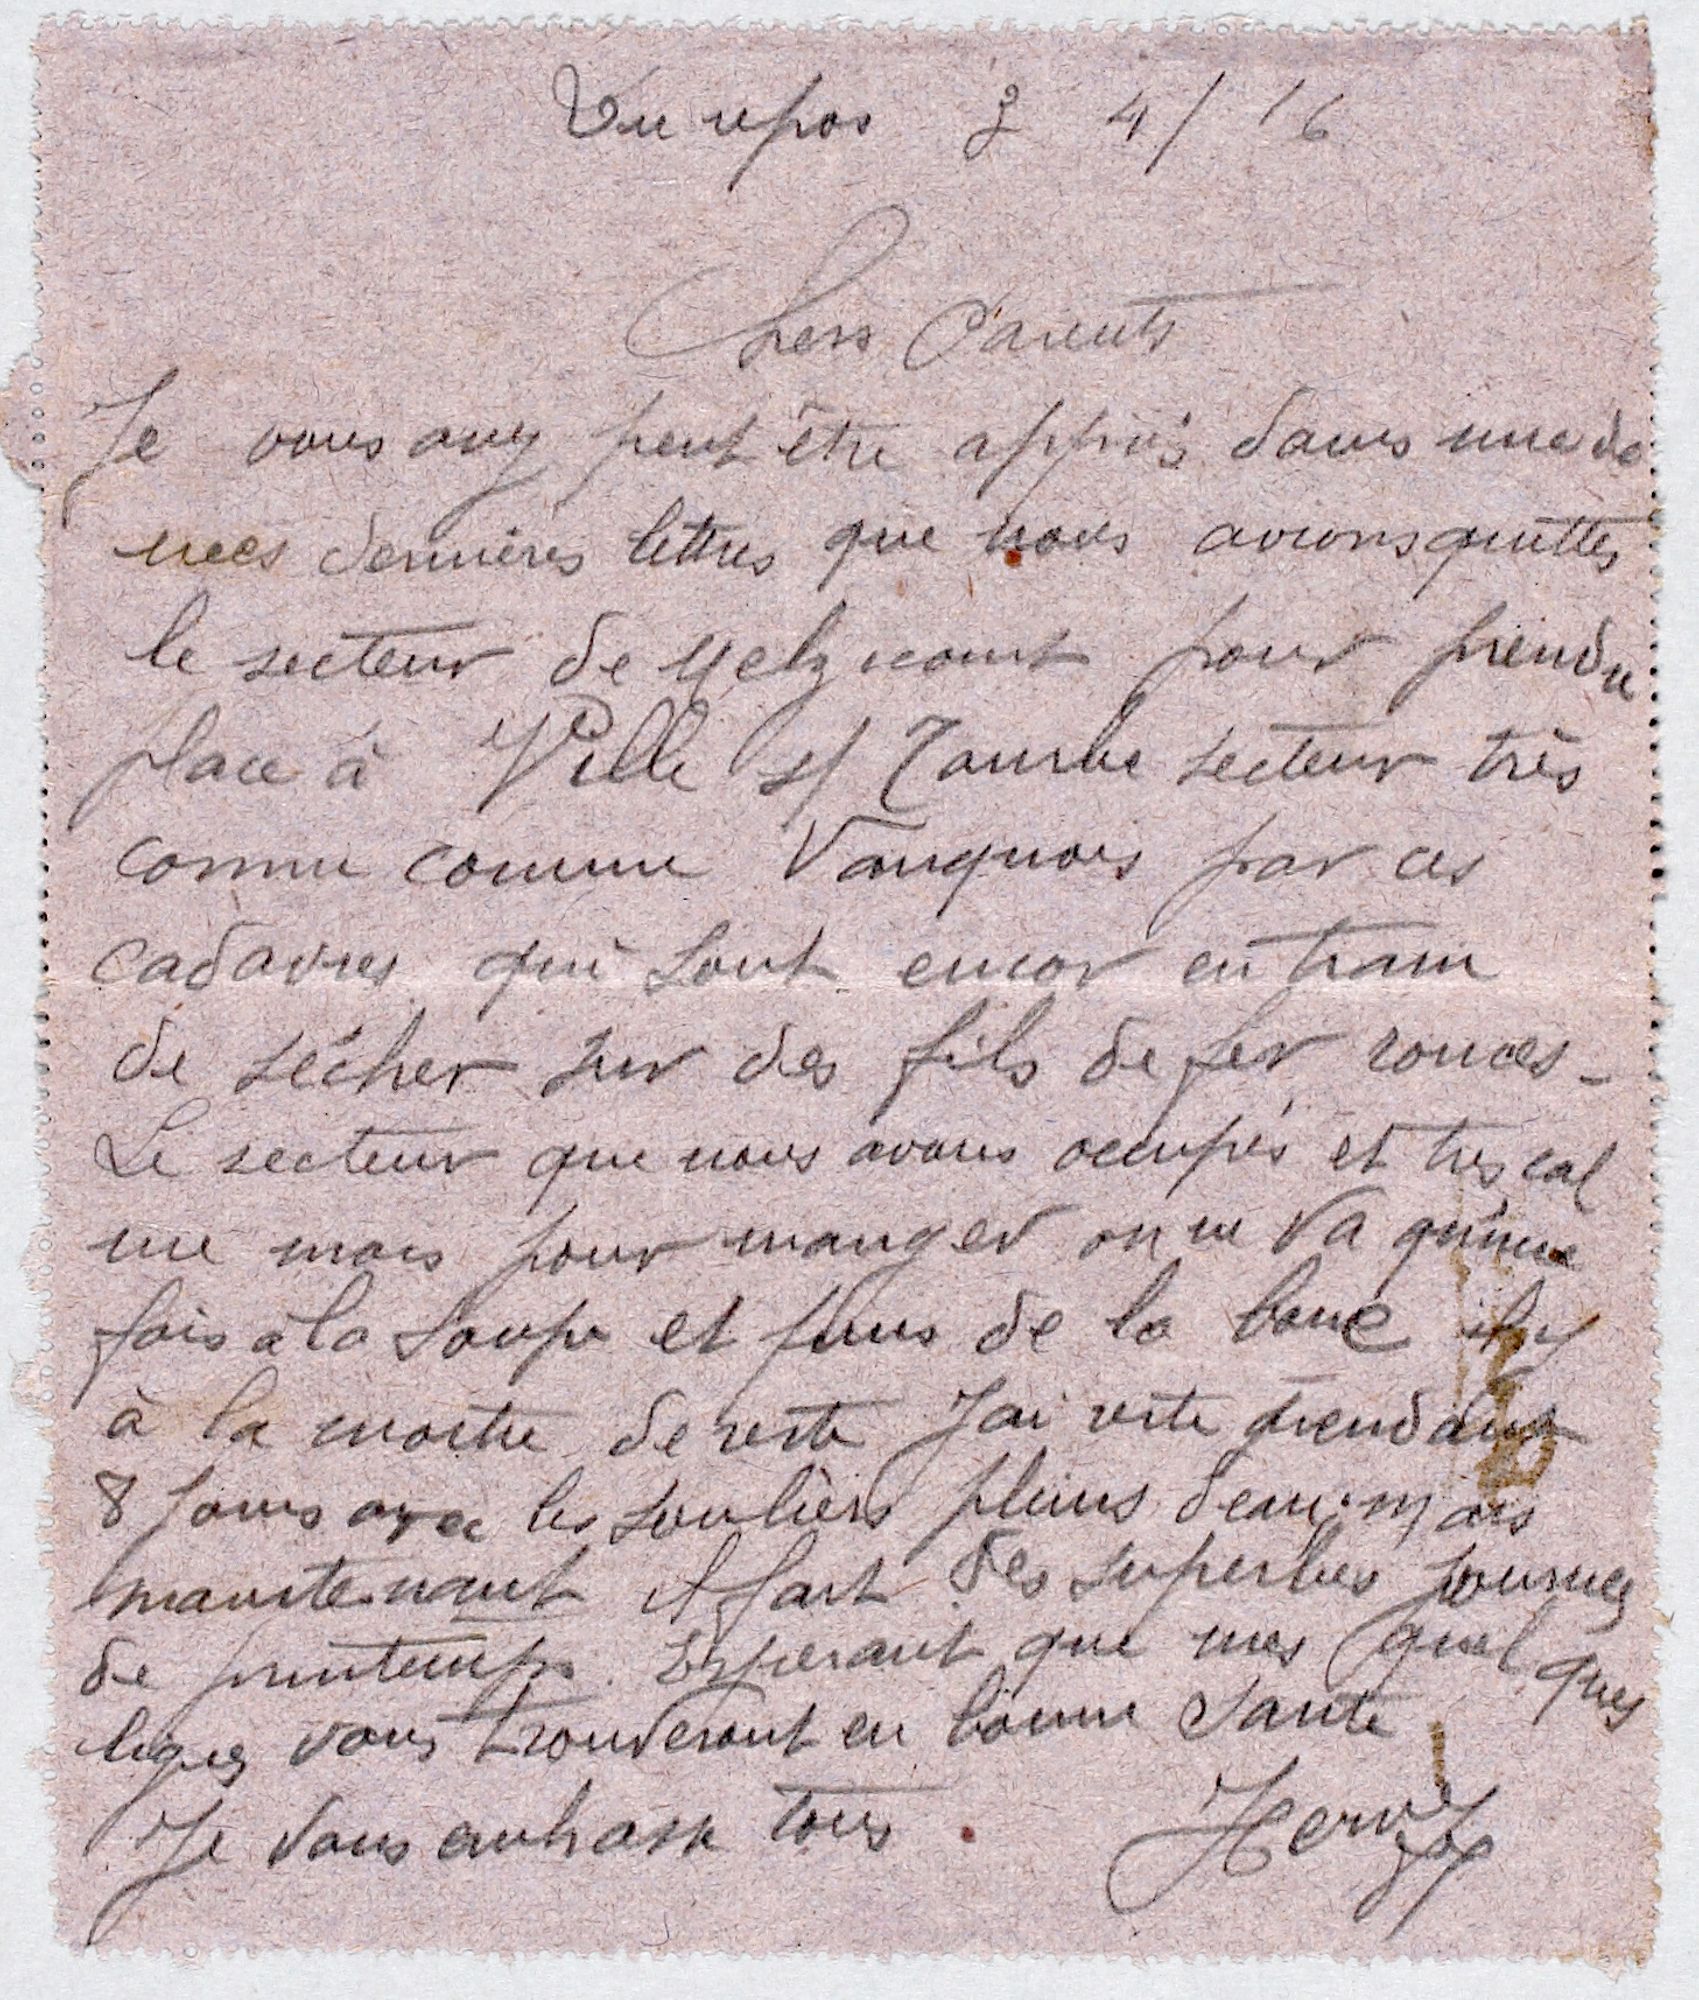 Au repos 8 4/16
Chers Parents
Je vous avez peut être appris dans une de
mes dernières lettres que nous avions quittés
le secteur de Melzicourt pour prendre
place à Ville s/ Tourbe secteur très
connu comme Vauquois par ces
cadavres qui sont encor en train
de sécher sur des fils de fer ronces -
Le secteur que nous avons occupés et tres cal
me mais pour manger on ne va qu'une
fois à la soupe et puis de la boue il y
à la moitre de reste J'ai reste pendant
8 jours avec les souliers pleins d'eau. mais
maintenant il fait des superbes journes
de printemps. Esperant que mes quel ques
lignes vous trouveront en bonne sante
Je vous embrasse tous.